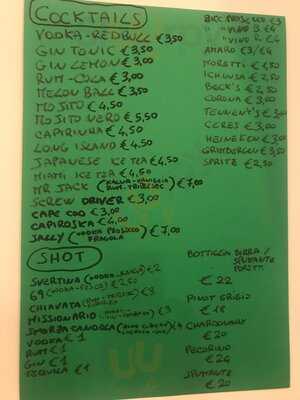 COCKTAILS
VODKA-REDBULL €3,50
GIN TONIC €3,50
GIN LEMON €3,00
RUM-COLA €3,00
MELON BALL €3,50
MOJITO €4,50
MOJITO NERO €5,50
CAPIRINHA €4,50
LONG ISLAND €4,50
JAPANESE ICE TEA €4,50
MIAMI ICE TEA €4,50
MR JACK (KALUA-VANIGLIA €7,00
SCREW DRIVER €3,00
CAPE COD €3,00
CAPIROSKA €4,00
SALLY (VODKA PROSECCO FRAGOLA €7,00
BICC. PROSECCO €3
" VINO B. €4
" VINO R. €4
AMARO €3/€4
MORETTI €2,50
ICHNUSA €2,50
BECK'S €2,50
CORONA €3,00
TENNENT'S €3,00
CERES €3,00
HEINEKEN €3,00
GRIMBERGEN €3,50
SPRITZ €2,50
SHOT
SVERTINA €2
69 €2,50
CHIAVATA €3
MISSIONARIO €3
SMORZA CANDELA €4
VODKA €1
RUM €1
GIN €1
TEQUILA €1
BOTTIGLIA BIRRA/
SPUMANTE
€ 22
PINOT GRIGIO
€ 18
CHARDONNAY
€ 20
PECORINO
€ 24
SPUMANTE
€ 20